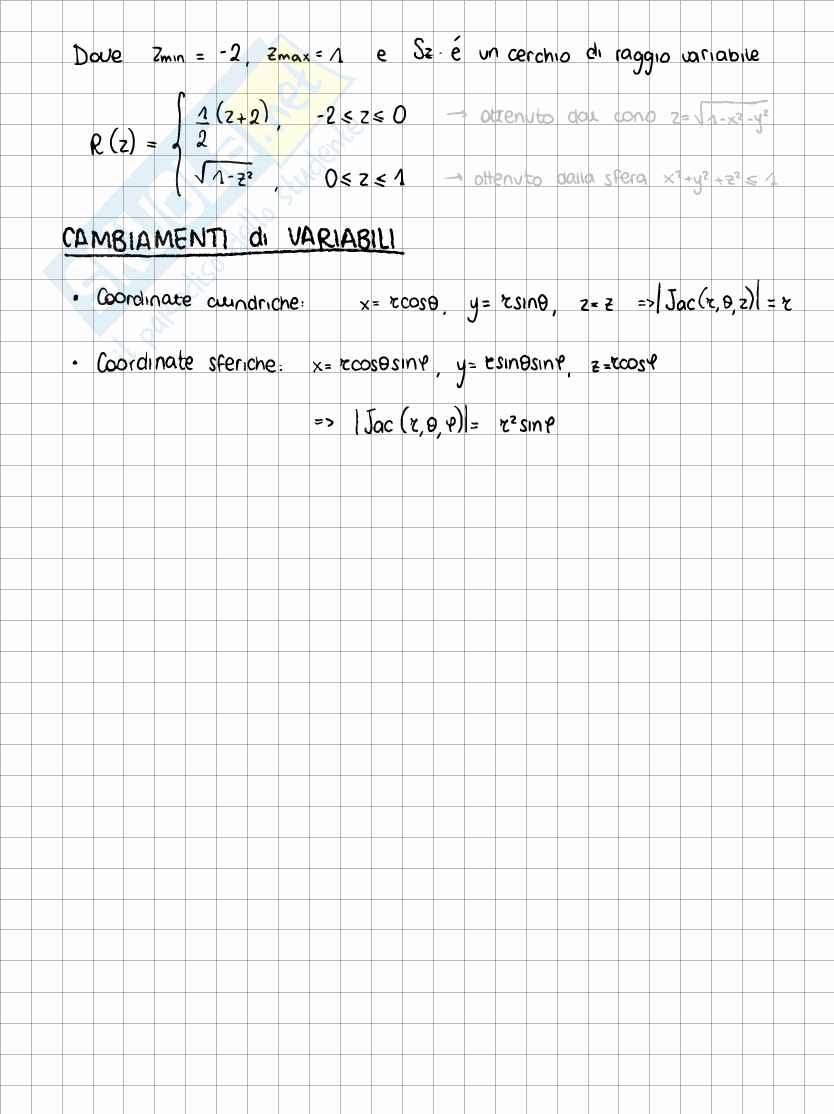 Dove Zmin = -2, Zmax = 1 e Sz é un cerchio di raggio variabile
R(z) = { 1/2 (z+2), -2 ≤ z ≤ 0 → ottenuto dal cono z=√1-x²-y²
√1-z², 0 ≤ z ≤ 1 → ottenuto dalla sfera x²+y²+z² ≤ 1
CAMBIAMENTI di VARIABILI
• Coordinate cilindriche: x = rcosθ, y = rsinθ, z = z => |Jac(r,θ,z)| = r
• Coordinate sferiche: x = rcosθsinφ, y = rsinθsinφ, z=rcosφ
=> |Jac(r,θ,φ)| = r²sinφ